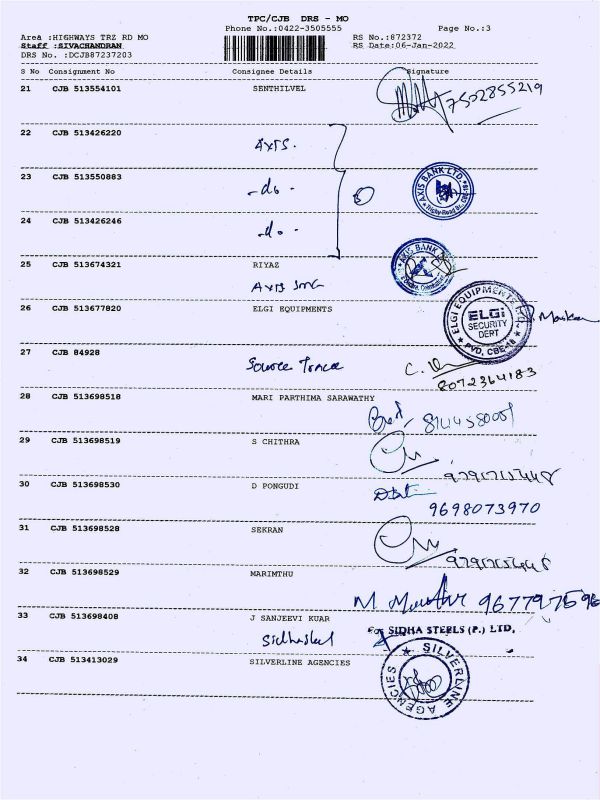 TPC/CJB DRS - MO
Phone No.:0422-3505555 Page No.:3
Area :HIGHWAYS TRZ RD MO RS No.:872372
Staff :SIVACHANDRAN RS Date:06-Jan-2022
DRS No. :DCJB87237203
S No Consignment No Consignee Details Signature
21 CJB 513554101 SENTHILVEL
7502855219
22 CJB 513426220
AXIS.
23 CJB 513550883
-do- AXIS BANK LTD.
24 CJB 513426246
-do-
AXIS BANK
25 CJB 513674321 RIYAZ
Axis
26 CJB 513677820 ELGI EQUIPMENTS
ELGI EQUIPMENTS LTD.
ELGI
SECURITY
DEPT
PVD, CBE-18
27 CJB 84928
Source Trace
8072364183
28 CJB 513698518 MARI PARTHIMA SARAWATHY
29 CJB 513698519 S CHITHRA
30 CJB 513698530 D PONGUDI
9698073970
31 CJB 513698528 SEKRAN
32 CJB 513698529 MARIMTHU
33 CJB 513698408 J SANJEEVI KUAR
Sidhasteel For SIDHA STEELS (P.) LTD.
34 CJB 513413029 SILVERLINE AGENCIES
SILVERLINE AGENCIES